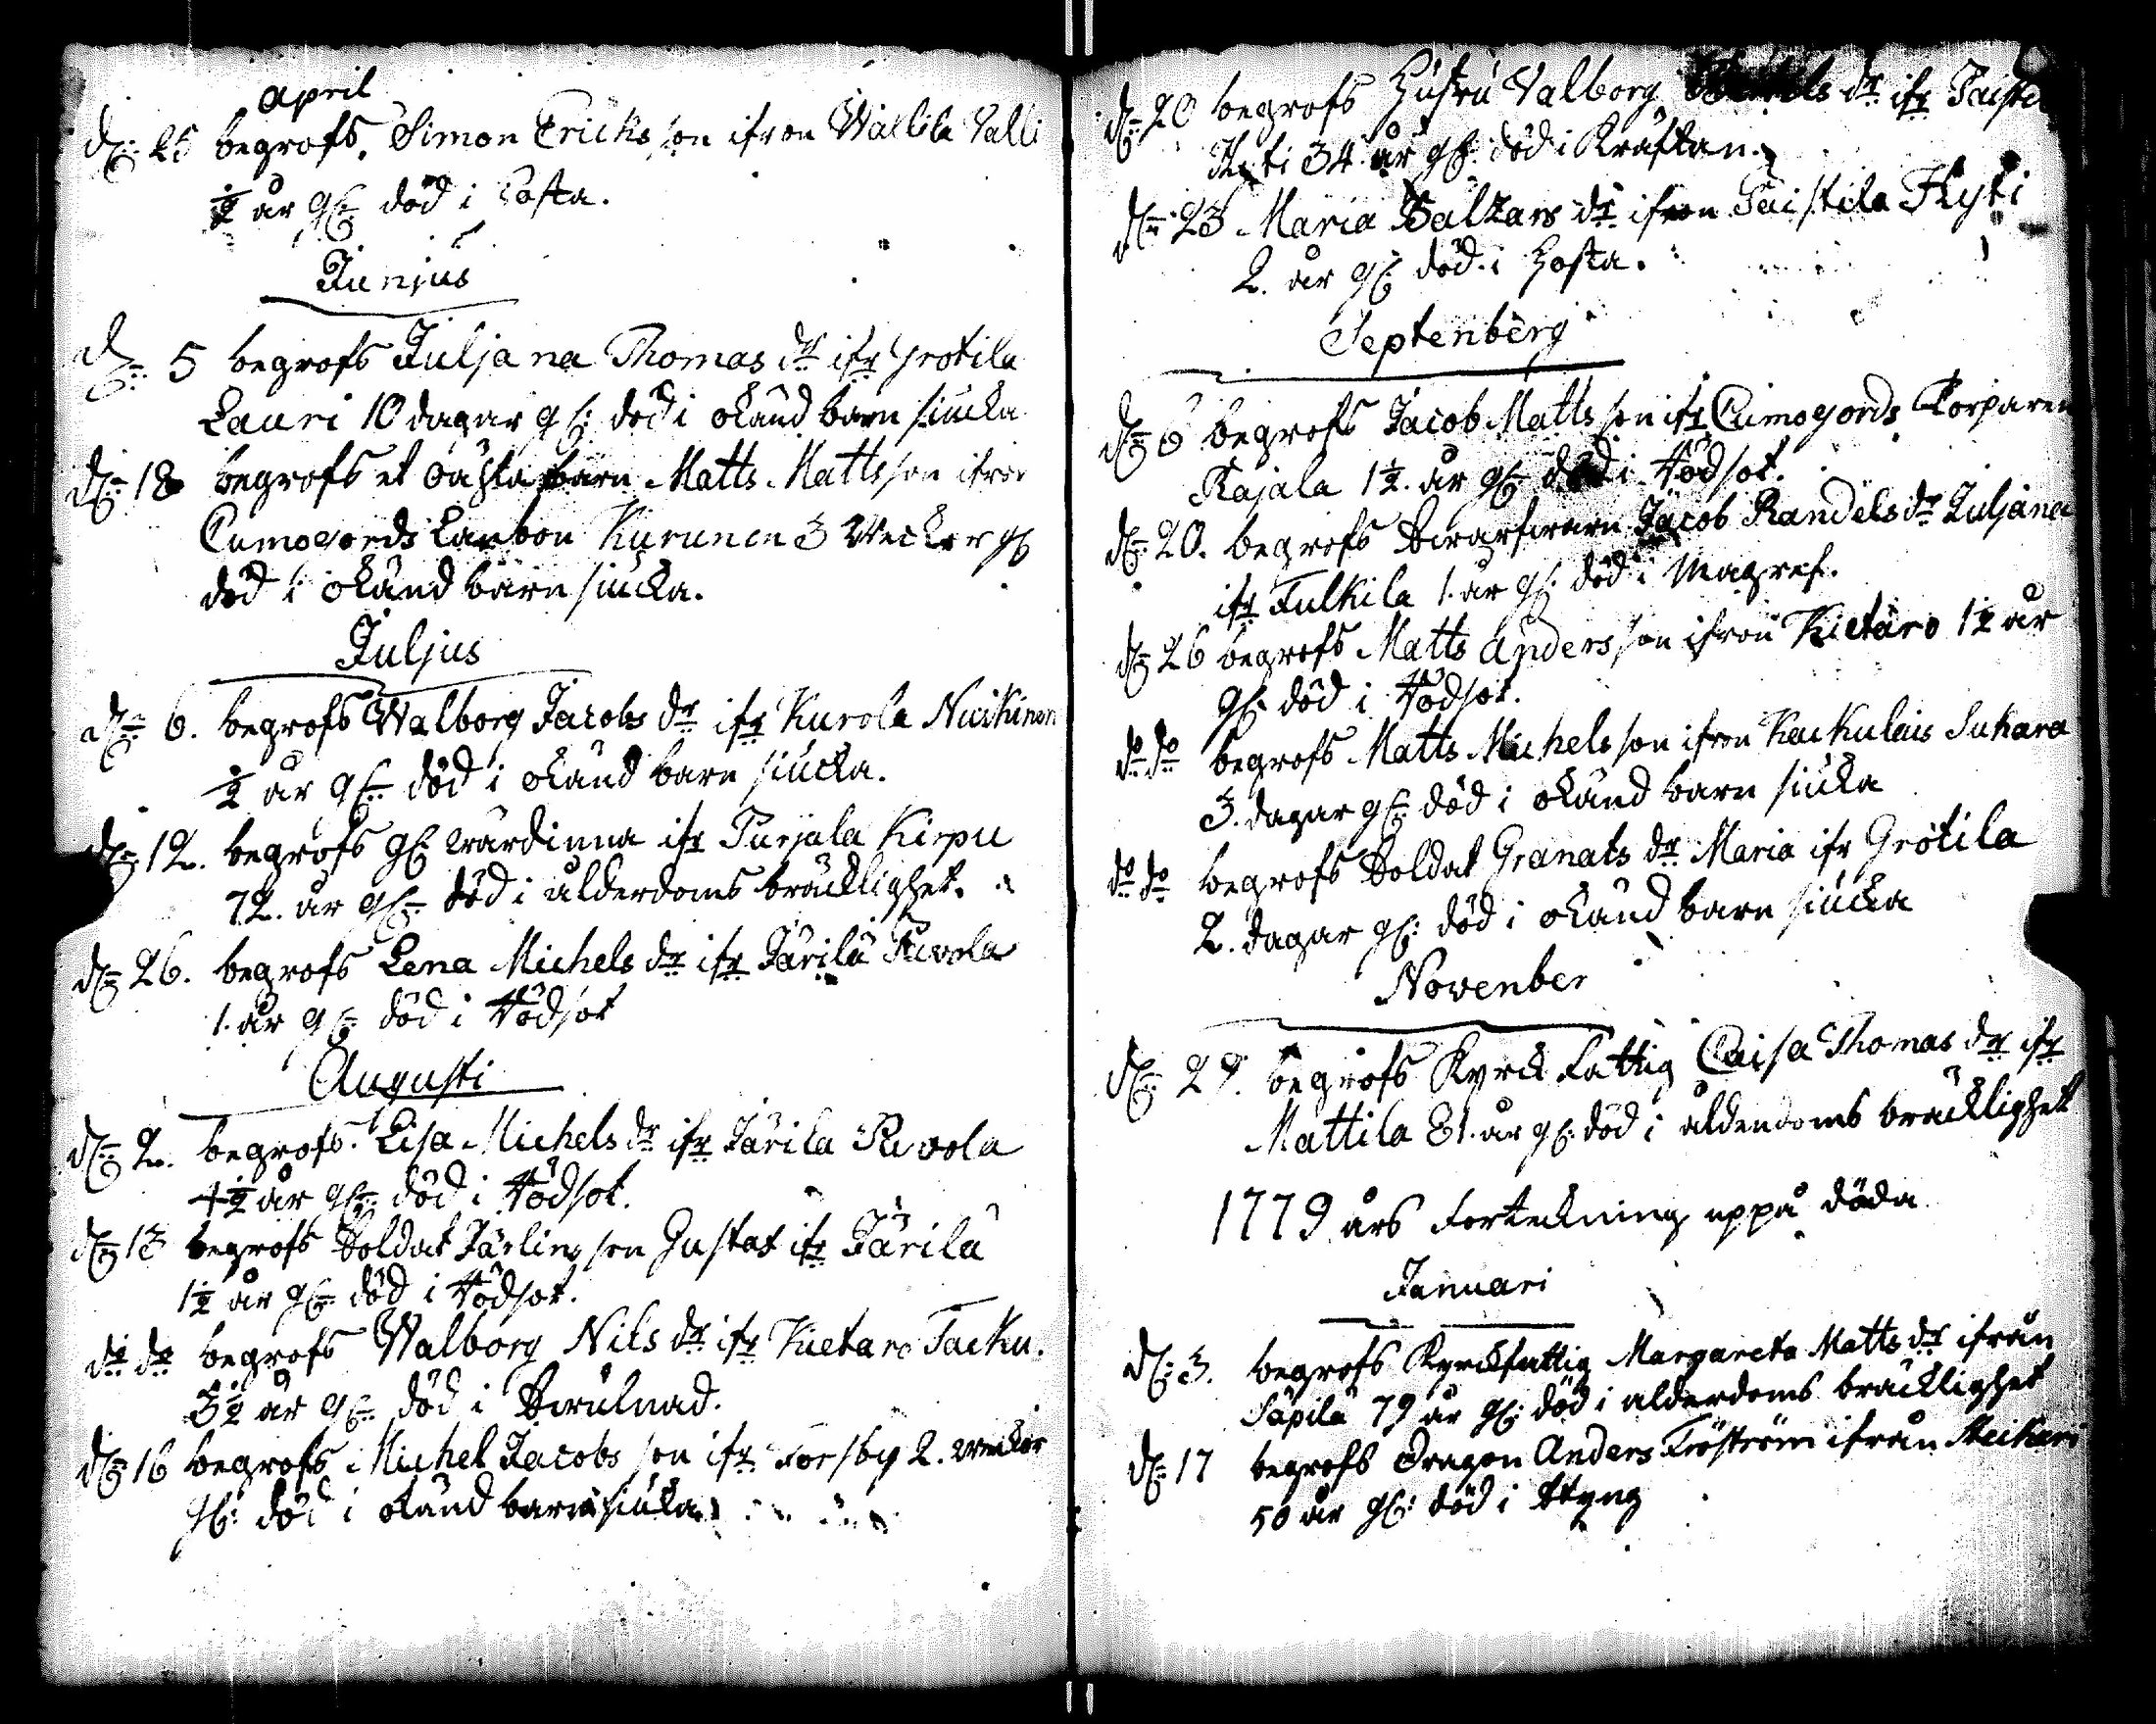 April
d: 25 begrofs Simon Ericks son ifron Wallila Valli
½ år gl: död i Hosta.
Junjus
d: 5 begrofs Juljana Thomas dr ifr Grotila
Lauri 10 dagar gl: död i okänd barn siucka
d: 18 begrofs et oächta barn Matts Matts son ifron
Cumogords Lanbon Kurunen 3 Weckor gl
död i okänd barn siucka.
Juljus
d: 6. begrofs Walborg Jacobs dr ifr Kurola
½ år gl: död i okänd barn siucka.
d: 12. begrofs gl: wärdinna ifr Purjala Kirpu
72. år gl: död i ålderdoms bräcklighet.
d: 26. begrofs Lena Michels dr ifr Järilä
1. år gl: död i Rödsot
Augusti
d: 2. begrofs Lisa Michels dr ifr Järila
4½ år gl: död i Rödsot.
d: 13 begrofs Soldat Järlings son Gustaf ifr Järilä
1½ år gl: död i Rödsot.
do do begrofs Walborg Nils dr ifr Kietaro Tacku.
3½ år gl: död i Swulnad.
d: 16 begrofs Michel Jacobs son ifr Forsby 2. weckor
gl: död i okänd barn siucka
d: 20 begrofs Hustru Valborg dr ifr
34 år gl: död i Kräftan.
d: 23 Maria Balzars dr ifron Paistila Flyti
2. år gl: död i Hosta.
Septenberg
d: 6 begrofs Jacob Matts son ifr Cumogords Torparen
Rajala 1½ år gl: död i Rödsot.
d: 20. begrofs Jacob Randels dr Juljana
ifr Fulkila 1. år gl: död i Magref.
d: 26 begrofs Matts Anders son ifron Kietäro 1½ år
gl: död i Rödsot.
do do begrofs Matts Michels son ifron Keukulais Sukara
3. dagar gl: död i okänd barn siucka
do do begrofs Soldat Granats dr Maria ifr Grötila
2. dagar gl: död i okänd barn siucka
Novenber
d: 29. begrofs Kyrck Fattig Caisa Thomas dr ifr
Mattila 81. år gl: död i ålderdoms bräcklighet
1779 års Forteckning uppå döda
Januari
d: 3. begrofs Kyrckfattig Margareta Matts dr ifrån
Säpilä 79 år gl: död i alderdoms bräcklighet
d: 17 begrofs Dragon Anders Fröström ifrån
50 år gl: död i Styng